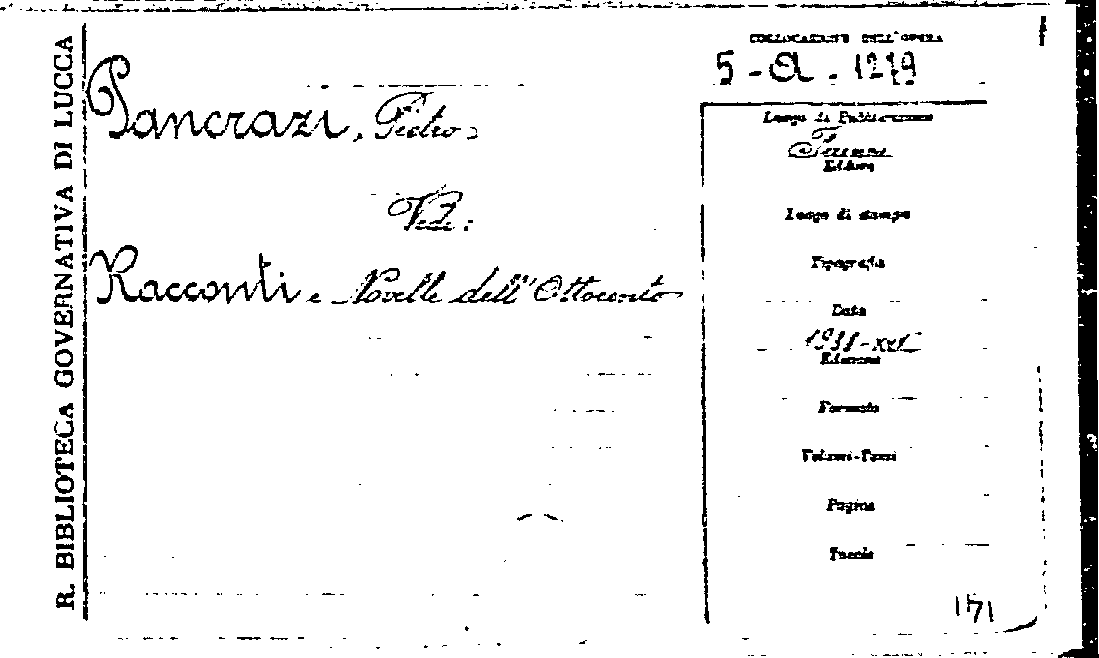 R. BIBLIOTECA GOVERNATIVA DI LUCCA
Pancrazi, Pietro
Vedi:
Racconti e Novelle dell'Ottocento
COLLOCAZIONE DELL'OPERA
5 - A - 1219
Luogo di Pubblicazione
Firenze
Editore
Luogo di stampa
Tipografia
Data
Edizione
Formato
Volumi-Tomi
Pagine
Tavole